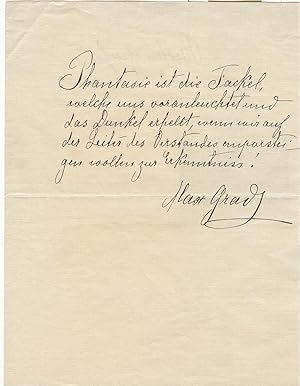 Phantasie ist die Fackel,
welche uns voranleuchtet und
das Dunkel erhellt, wenn wir auf
der Leiter des Verstandes emporstei-
gen wollen zur Erkenntniss!
Max Grad